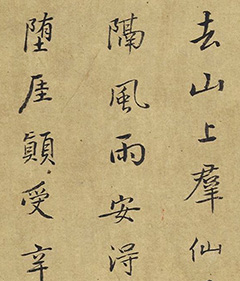 去山上羣仙
隔風雨安得
堕厓顛受辛